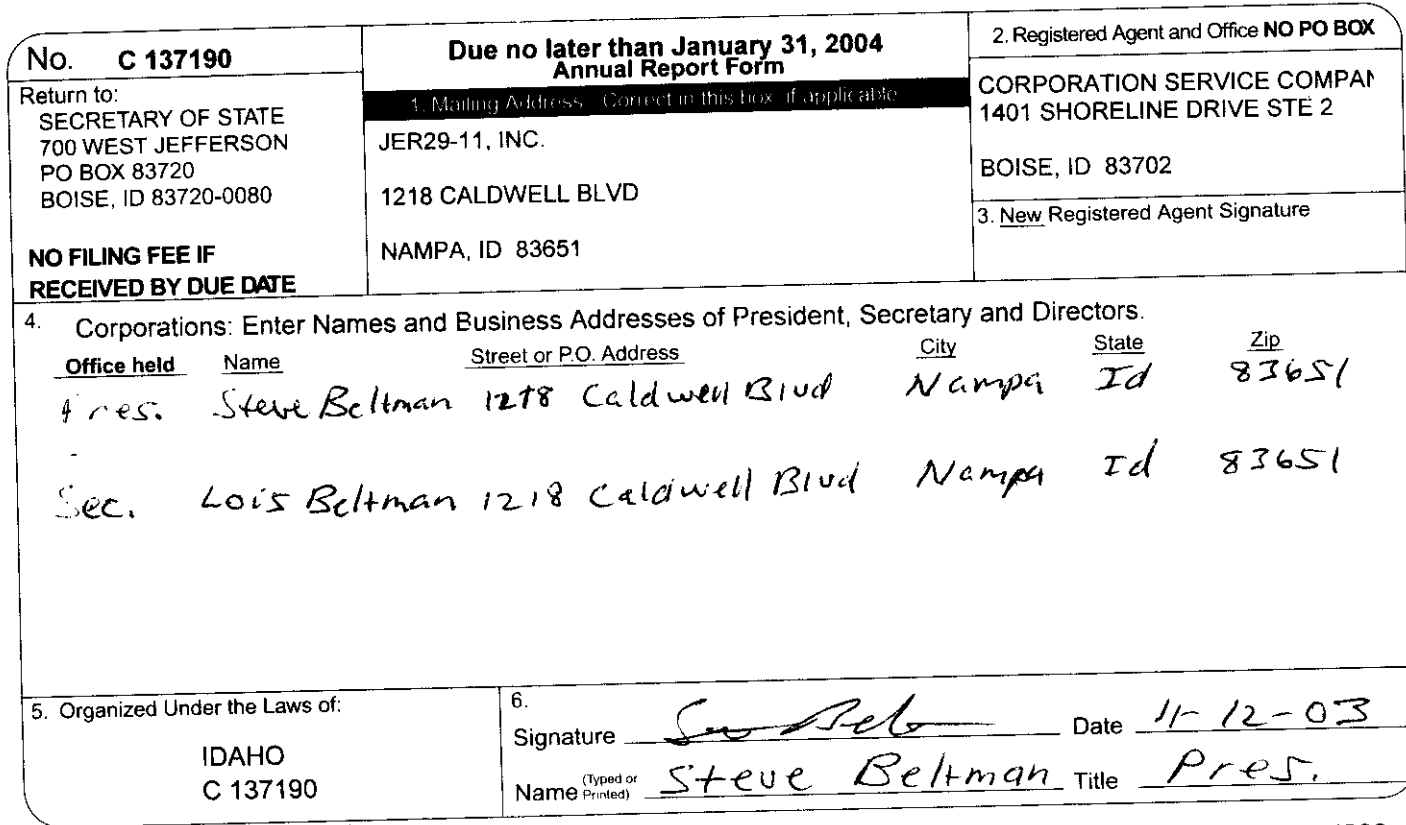 No. C 137190
Return to:
SECRETARY OF STATE
700 WEST JEFFERSON
PO BOX 83720
BOISE, ID 83720-0080
NO FILING FEE IF
RECEIVED BY DUE DATE
Due no later than January 31, 2004
Annual Report Form
1. Mailing Address Correct in this box if applicable
JER29-11, INC.
1218 CALDWELL BLVD
NAMPA, ID 83651
2. Registered Agent and Office NO PO BOX
CORPORATION SERVICE COMPAN
1401 SHORELINE DRIVE STE 2
BOISE, ID 83702
3. New Registered Agent Signature
4. Corporations: Enter Names and Business Addresses of President, Secretary and Directors.
Office held Name Street or P.O. Address City State Zip
Pres. Steve Beltman 1218 Caldwell Blvd Nampa Id 83651
Sec. Lois Beltman 1218 Caldwell Blvd Nampa Id 83651
5. Organized Under the Laws of:
IDAHO
C 137190
6.
Signature Date 11-12-03
Name (Typed or Printed) Steve Beltman Title Pres.